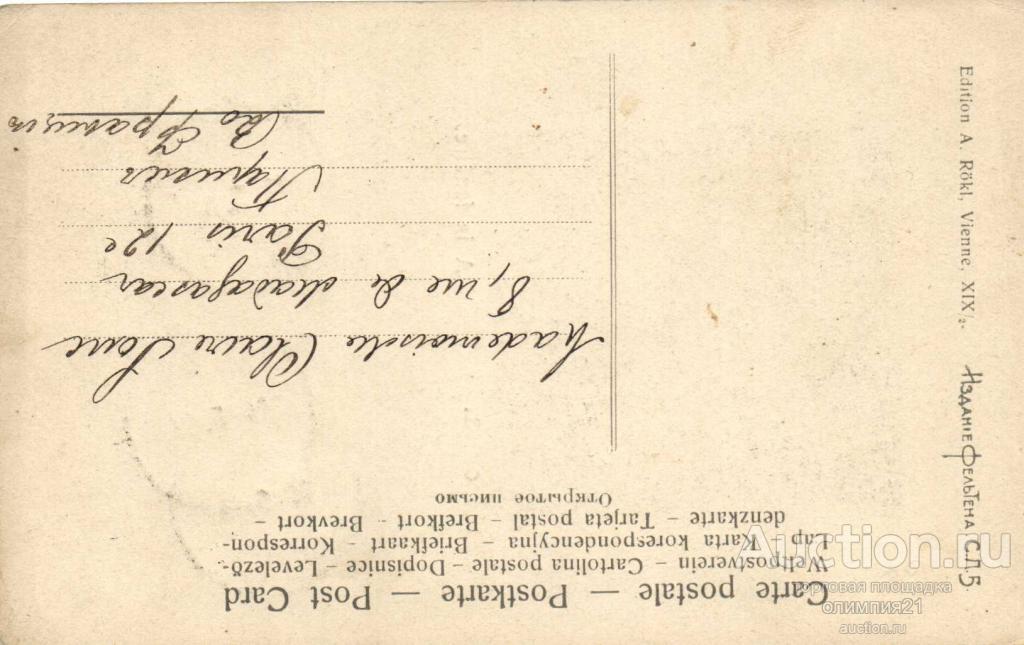 Carte postale — Postkarte — Post Card
Weltpostverein – Cartolina postale – Dopisnice – Levelező-
Lap – Karta korespondencyjna – Briefkaart – Korrespon-
denzkarte – Tarjeta postal – Brefkort – Brevkort –
Открытое письмо
Mademoiselle Claire
8, rue de Madagascar
Paris 12e
Парижъ
Во Францiю
Edition A. Rökl, Vienne, XIX/2.
Изданiе Фельтена С.П.Б.
Auction.ru
торговая площадка
олимпия21
auction.ru